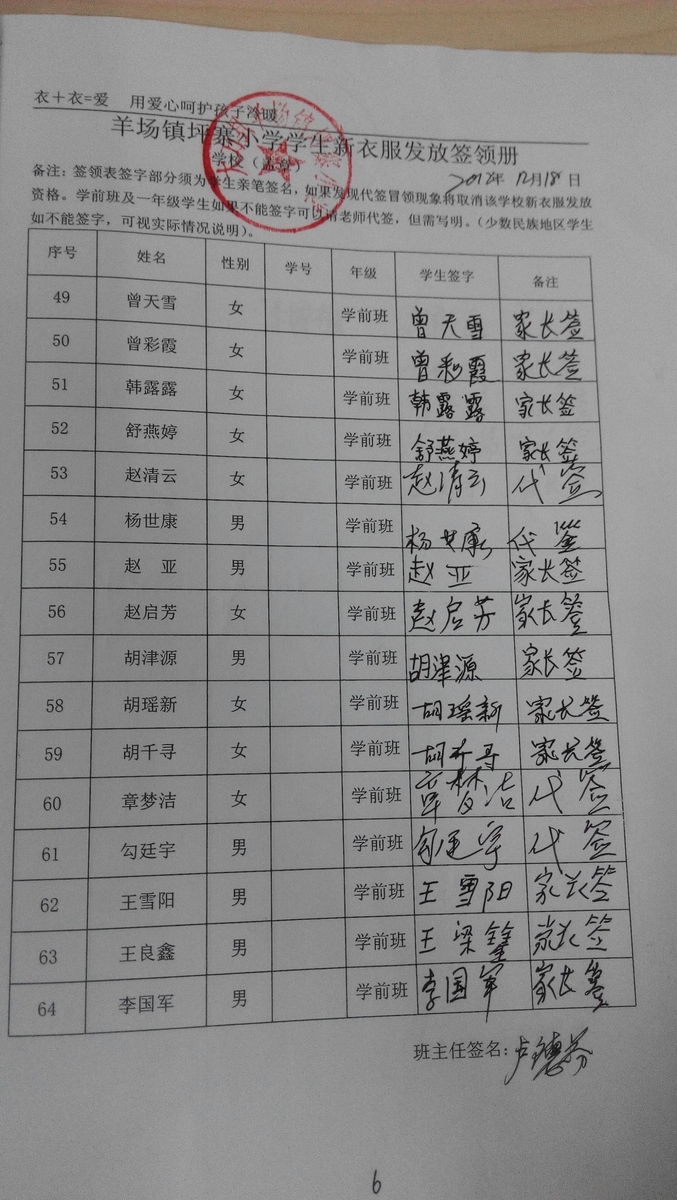 衣＋衣=爱 用爱心呵护孩子冷暖
羊场镇坪寨小学学生新衣服发放签领册
学校（盖章） 2012年12月18日
备注：签领表签字部分须为学生亲笔签名，如果发现代签冒领现象将取消该学校新衣服发放
资格。学前班及一年级学生如果不能签字可以请老师代签，但需写明。（少数民族地区学生
如不能签字，可视实际情况说明）。
序号 姓名 性别 学号 年级 学生签字 备注
49 曾天雪 女 学前班 曾天雪 家长签
50 曾彩霞 女 学前班 曾彩霞 家长签
51 韩露露 女 学前班 韩露露 家长签
52 舒燕婷 女 学前班 舒燕婷 家长签
53 赵清云 女 学前班 赵清云 代签
54 杨世康 男 学前班 杨世康 代签
55 赵 亚 男 学前班 赵亚 家长签
56 赵启芳 女 学前班 赵启芳 家长签
57 胡津源 男 学前班 胡津源 家长签
58 胡瑶新 女 学前班 胡瑶新 家长签
59 胡千寻 女 学前班 胡千寻 家长签
60 章梦洁 女 学前班 章梦洁 代签
61 勾廷宇 男 学前班 勾廷宇 代签
62 王雪阳 男 学前班 王雪阳 家长签
63 王良鑫 男 学前班 王梁鑫 家长签
64 李国军 男 学前班 李国军 家长签
班主任签名：卢德芬
6